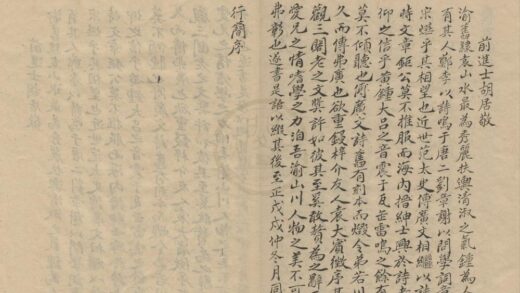 前進士胡居敬
渝舊隸袁山水最為秀麗扶輿清淑之氣鍾為人
有其人鄭李以詩鳴于唐二劉章謝以問學詞
宋炳乎其相望也近世范太史傅廣文相繼以詩
時文章鉅公莫不推服而海内搢紳士興於詩者
仰之信乎黃鍾大呂之音震于瓦缶雷鳴之餘有
莫不傾聽也傅廣文詩舊有刻本而燬令弟若川
久而傳弗廣也欲重鋟梓介友人袁大賓徵序其
觀三閣老之文奬許如彼其至奚敢贅為之辭
愛兄之情嗜學之力洎吾渝山川人物之美不可
弗彰也遂書是語以繼其後至正戊戌仲冬月同
行簡序